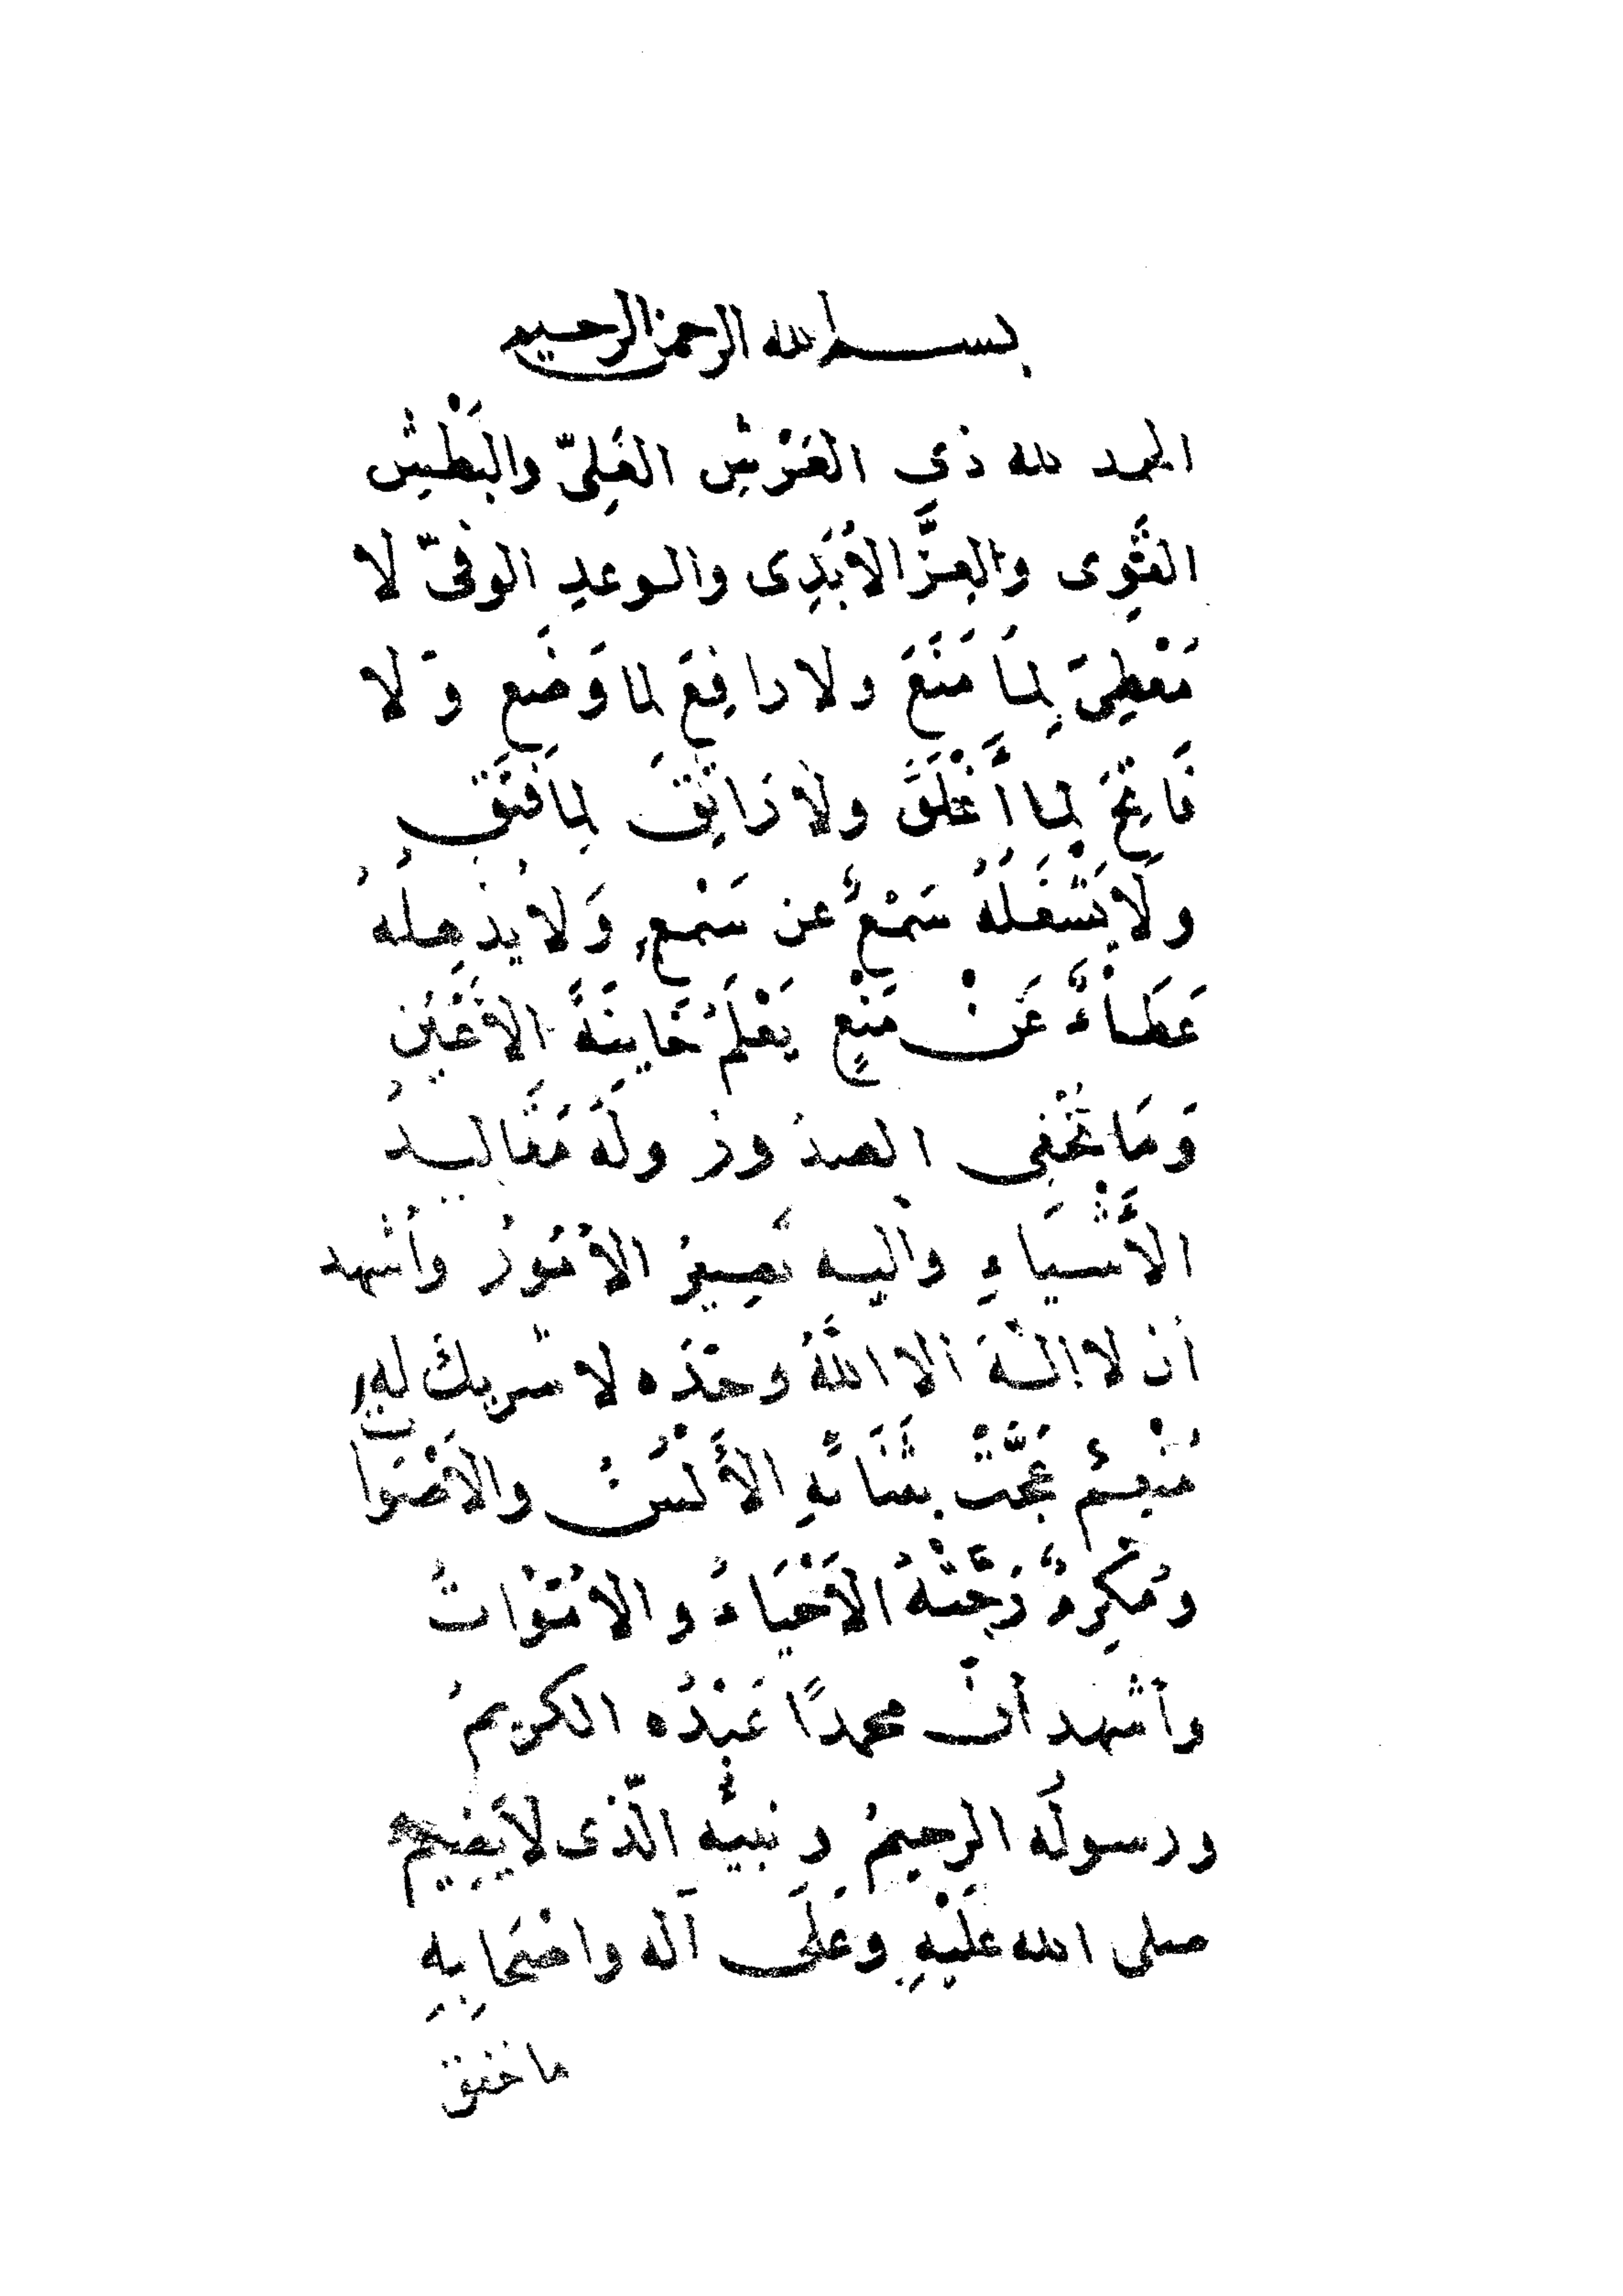 بسم الله الرحمن الرحيم
الحمد لله ذي العَرْشِ العَلِىّ والبَطْشِ
القَوِى والعِزَّ الأَبَدِى والوعدِ الوفىّ لا
مُعْطِىَ لِمَا مَنَعَ ولا رافِعَ لما وَضَع وَلا
فَاتِحَ لما أَغْلَقَ ولا رَاتِقَ لِمَا فَتَق
ولَا يَشْغَلُهُ سَمْعٌ عن سَمْعٍ وَلا يُذهِلُهُ
عَطَاءٌ عَنْ مَنْعٍ يَعْلَمُ خَاينَةَ الأَعْيُن
وَمَا تُخْفِى الصدُورُ ولَهُ مَقَاليدُ
الأَشْيَاءِ وإليه تَصِيرُ الأُمُورُ وأشهد
أن لا إلهَ الا اللهُ وحْدَه لا شريكَ له
مُنْعِمٌ عَجَّتْ بثَنَائهِ الأَلْسُنُ والأَصْوَاتُ
ومُكرِمٌ رَجَّتْهُ الأَحْيَاءُ والأَمْوَاتُ
وأشهد أنّ محمدًا عَبْدُه الكريمُ
ورسولُه الرحيمُ ونبيُّه الّذى لَا يَضِيمُ
صلى الله عَلَيْهِ وعَلَى آله واصْحَابِهِ
ما خفق